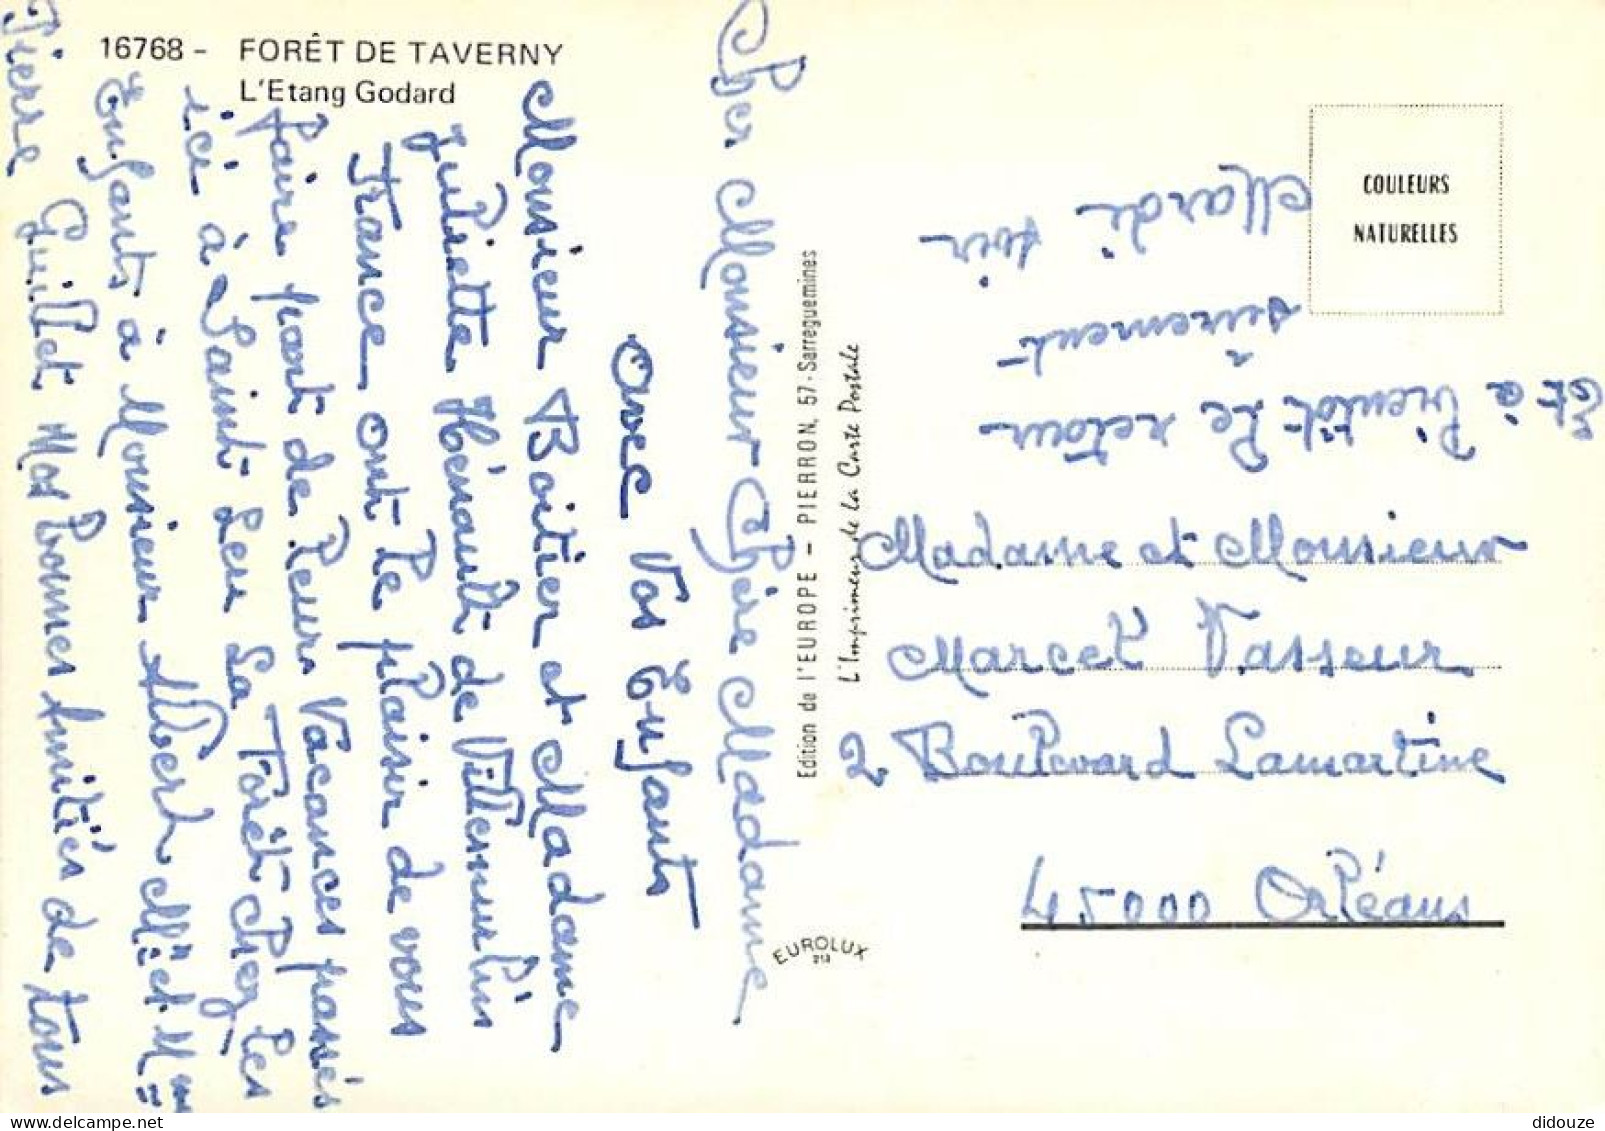 16768 - FORÊT DE TAVERNY
L'Etang Godard
Cher Monsieur Chère Madame
avec Vos Enfants
Monsieur Boitier et Madame
Juliette Hénault de Villemulin
France ont le plaisir de vous
faire part de leurs Vacances passés
ici à Saint Leu La Forêt chez les
Enfants à Monsieur Albert Mr et Mme
Pierre Guillet Mes Bonnes Amitiés de tous
Et à bientôt le retour
surement
Mardi soir
Edition de l'EUROPE - PIERRON, 57 - Sarreguemines
L'Imprimeur de la Carte Postale
EUROLUX
COULEURS
NATURELLES
Madame et Monsieur
Marcel Vasseur
2 Boulevard Lamartine
45000 Orléans
didouze